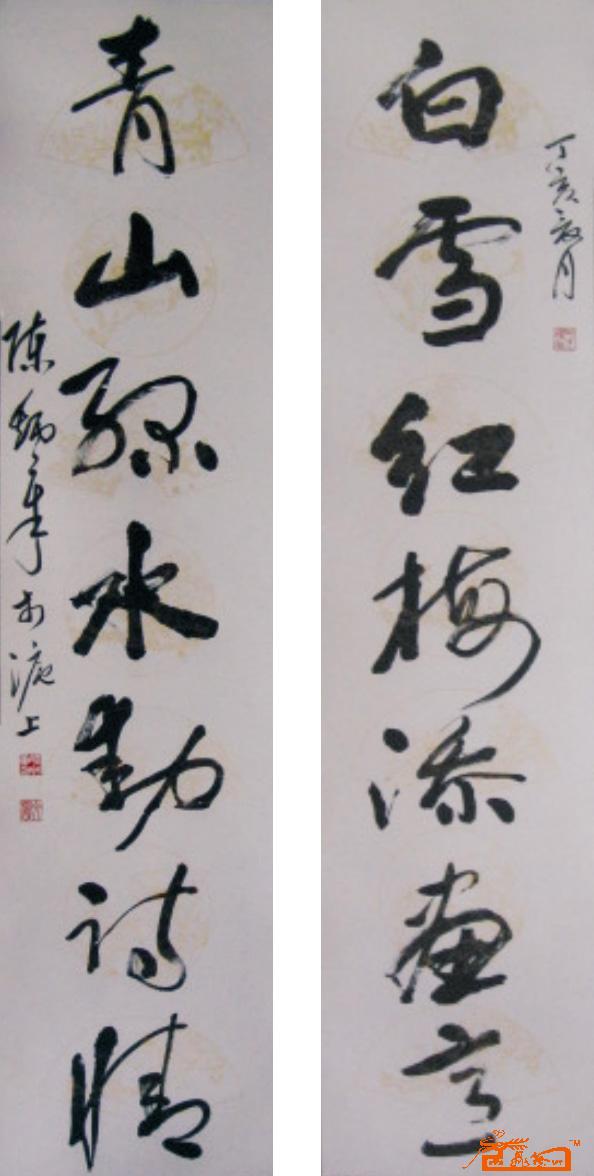 丁亥之月
白雪红梅添画意
青山绿水動诗情
陈 年於沪上